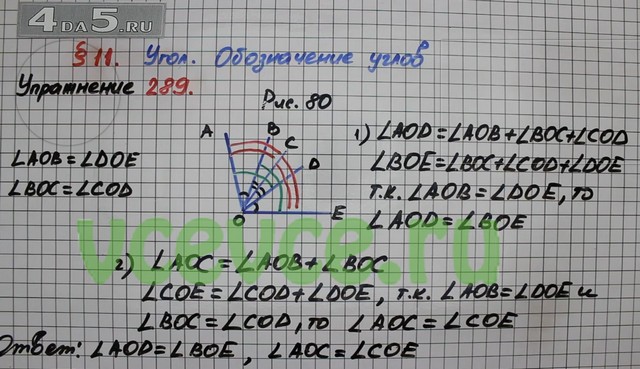 4DA5.RU
§ 11. Угол. Обозначение углов
Упражнение 289.
Рис. 80
A
B
C
D
E
O
∠AOB = ∠DOE
∠BOC = ∠COD
1) ∠AOD = ∠AOB + ∠BOC + ∠COD
∠BOE = ∠BOC + ∠COD + ∠DOE
т.к. ∠AOB = ∠DOE, то
∠AOD = ∠BOE
2) ∠AOC = ∠AOB + ∠BOC
∠COE = ∠COD + ∠DOE, т.к. ∠AOB = ∠DOE и
∠BOC = ∠COD, то ∠AOC = ∠COE
Ответ: ∠AOD = ∠BOE, ∠AOC = ∠COE
vcevce.ru